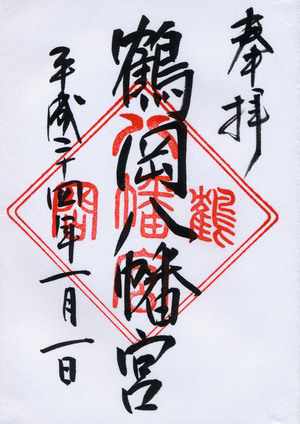 奉拝
鶴岡八幡宮
平成二十四年一月一日
鶴
八幡宮
岡